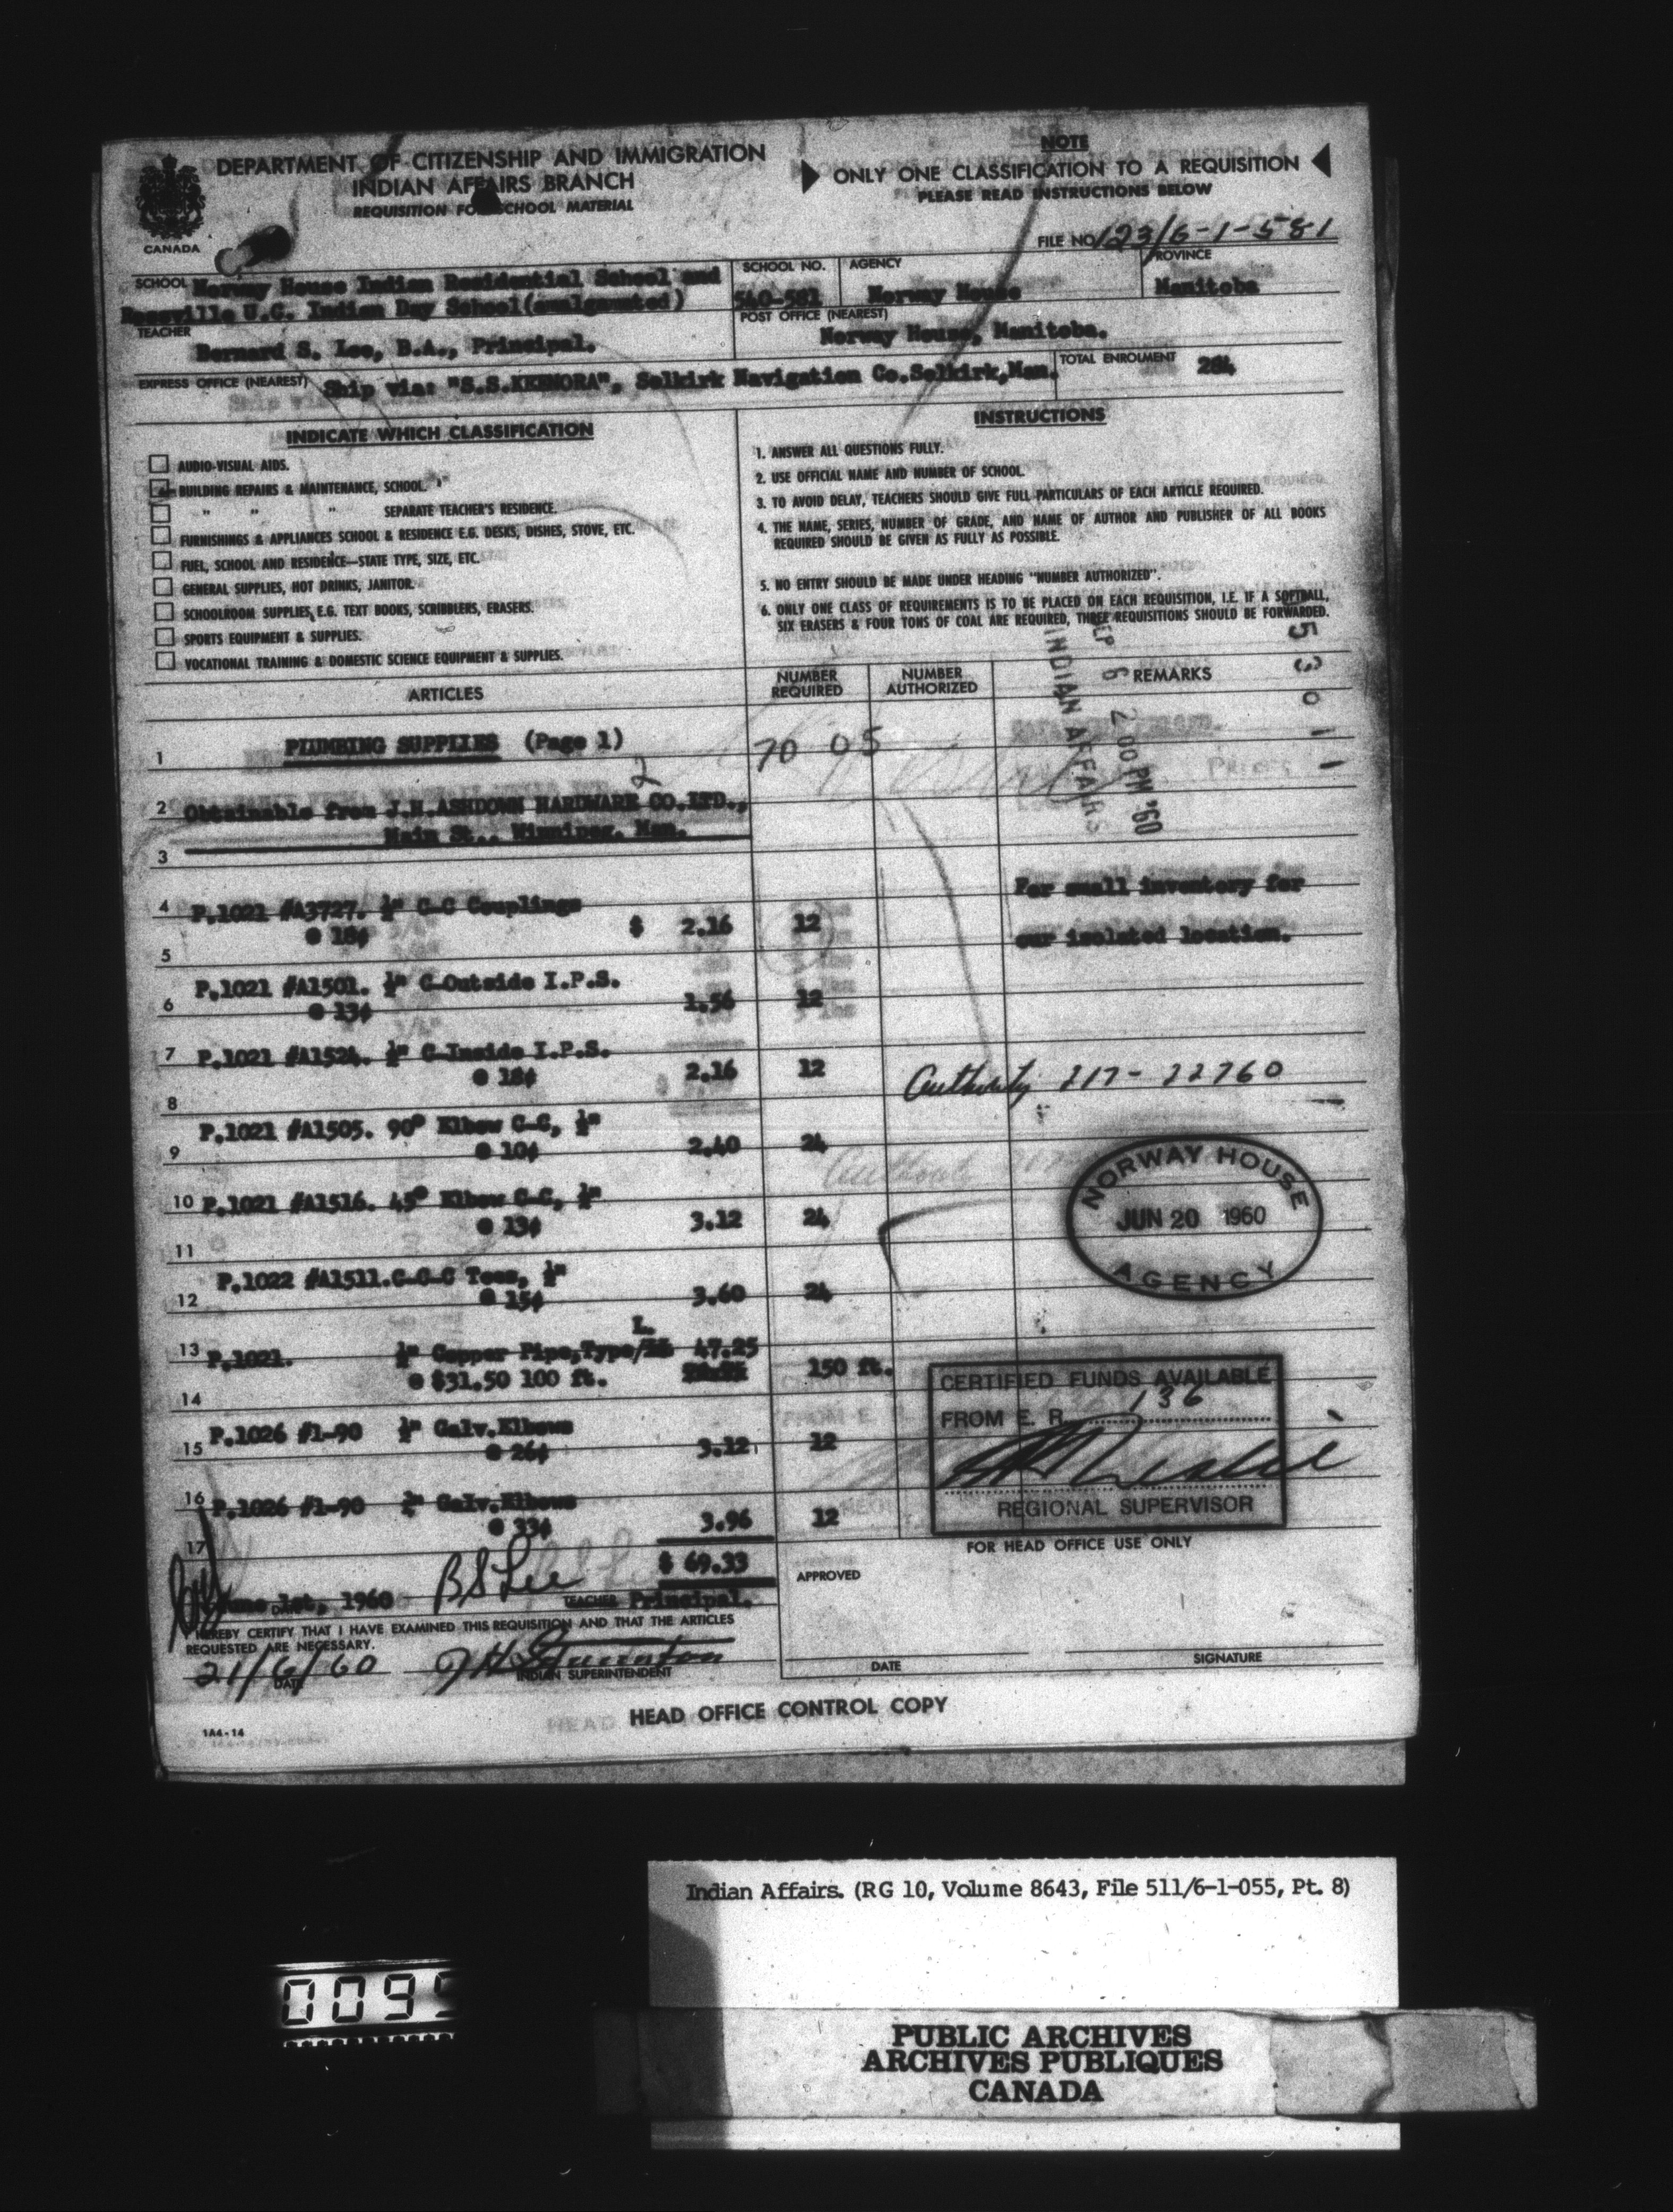 DEPARTMENT OF CITIZENSHIP AND IMMIGRATION
INDIAN AFFAIRS BRANCH
REQUISITION FOR SCHOOL MATERIAL
CANADA
NOTE
ONLY ONE CLASSIFICATION TO A REQUISITION
PLEASE READ INSTRUCTIONS BELOW
FILE NO. 123/6-1-581
SCHOOL Norway House Indian Residential School and
Rossville U.C. Indian Day School(amalgamated)
SCHOOL NO. 540-581
AGENCY Norway House
PROVINCE Manitoba
TEACHER Bernard S. Lee, B.A., Principal.
POST OFFICE (NEAREST) Norway House, Manitoba.
EXPRESS OFFICE (NEAREST) Ship via: "S.S.KEENORA", Selkirk Navigation Co.Selkirk,Man.
TOTAL ENROLMENT 284
INDICATE WHICH CLASSIFICATION
AUDIO-VISUAL AIDS.
BUILDING REPAIRS & MAINTENANCE, SCHOOL.
" " " SEPARATE TEACHER'S RESIDENCE.
FURNISHINGS & APPLIANCES SCHOOL & RESIDENCE E.G. DESKS, DISHES, STOVE, ETC.
FUEL, SCHOOL AND RESIDENCE—STATE TYPE, SIZE, ETC.
GENERAL SUPPLIES, HOT DRINKS, JANITOR.
SCHOOLROOM SUPPLIES, E.G. TEXT BOOKS, SCRIBBLERS, ERASERS.
SPORTS EQUIPMENT & SUPPLIES.
VOCATIONAL TRAINING & DOMESTIC SCIENCE EQUIPMENT & SUPPLIES.
INSTRUCTIONS
1. ANSWER ALL QUESTIONS FULLY.
2. USE OFFICIAL NAME AND NUMBER OF SCHOOL.
3. TO AVOID DELAY, TEACHERS SHOULD GIVE FULL PARTICULARS OF EACH ARTICLE REQUIRED.
4. THE NAME, SERIES, NUMBER OF GRADE, AND NAME OF AUTHOR AND PUBLISHER OF ALL BOOKS
REQUIRED SHOULD BE GIVEN AS FULLY AS POSSIBLE.
5. NO ENTRY SHOULD BE MADE UNDER HEADING "NUMBER AUTHORIZED".
6. ONLY ONE CLASS OF REQUIREMENTS IS TO BE PLACED ON EACH REQUISITION, I.E. IF A SOFTBALL,
SIX ERASERS & FOUR TONS OF COAL ARE REQUIRED, THREE REQUISITIONS SHOULD BE FORWARDED.
53011
SEP 6 2 00 PM '60
INDIAN AFFAIRS
ARTICLES
NUMBER REQUIRED
NUMBER AUTHORIZED
REMARKS
1 PLUMBING SUPPLIES (Page 1) 70 05
2 Obtainable from J.H.ASHDOWN HARDWARE CO.LTD.,
Main St., Winnipeg, Man.
3
4 P.1021 #A3727. ½" C-C Couplings
@ 18¢ $ 2.16 12
For small inventory for
our isolated location.
5
6 P.1021 #A1501. ½" C-Outside I.P.S.
@ 13¢ 1.56 12
7 P.1021 #A1524. ½" C-Inside I.P.S.
@ 18¢ 2.16 12
Authority 217-22760
8
9 P.1021 #A1505. 90° Elbow C-C, ½"
@ 10¢ 2.40 24
10 P.1021 #A1516. 45° Elbow C-C, ½"
@ 13¢ 3.12 24
11
NORWAY HOUSE
JUN 20 1960
AGENCY
12 P.1022 #A1511.C-C-C Tees, ½"
@ 15¢ 3.60 24
13 P.1021. ½" Copper Pipe,Type/ L. 47.25
@ $31.50 100 ft. 150 ft.
14
15 P.1026 #1-90 ½" Galv.Elbows
@ 26¢ 3.12 12
16 P.1026 #1-90 ¾" Galv.Elbows
@ 33¢ 3.96 12
17 $ 69.33
CERTIFIED FUNDS AVAILABLE
FROM E. R. 136
REGIONAL SUPERVISOR
FOR HEAD OFFICE USE ONLY
APPROVED
June 1st, 1960 B S Lee
DATE TEACHER Principal.
I HEREBY CERTIFY THAT I HAVE EXAMINED THIS REQUISITION AND THAT THE ARTICLES
REQUESTED ARE NECESSARY.
21/6/60
DATE INDIAN SUPERINTENDENT
DATE
SIGNATURE
HEAD OFFICE CONTROL COPY
1A4-14
Indian Affairs. (RG 10, Volume 8643, File 511/6-1-055, Pt. 8)
PUBLIC ARCHIVES
ARCHIVES PUBLIQUES
CANADA